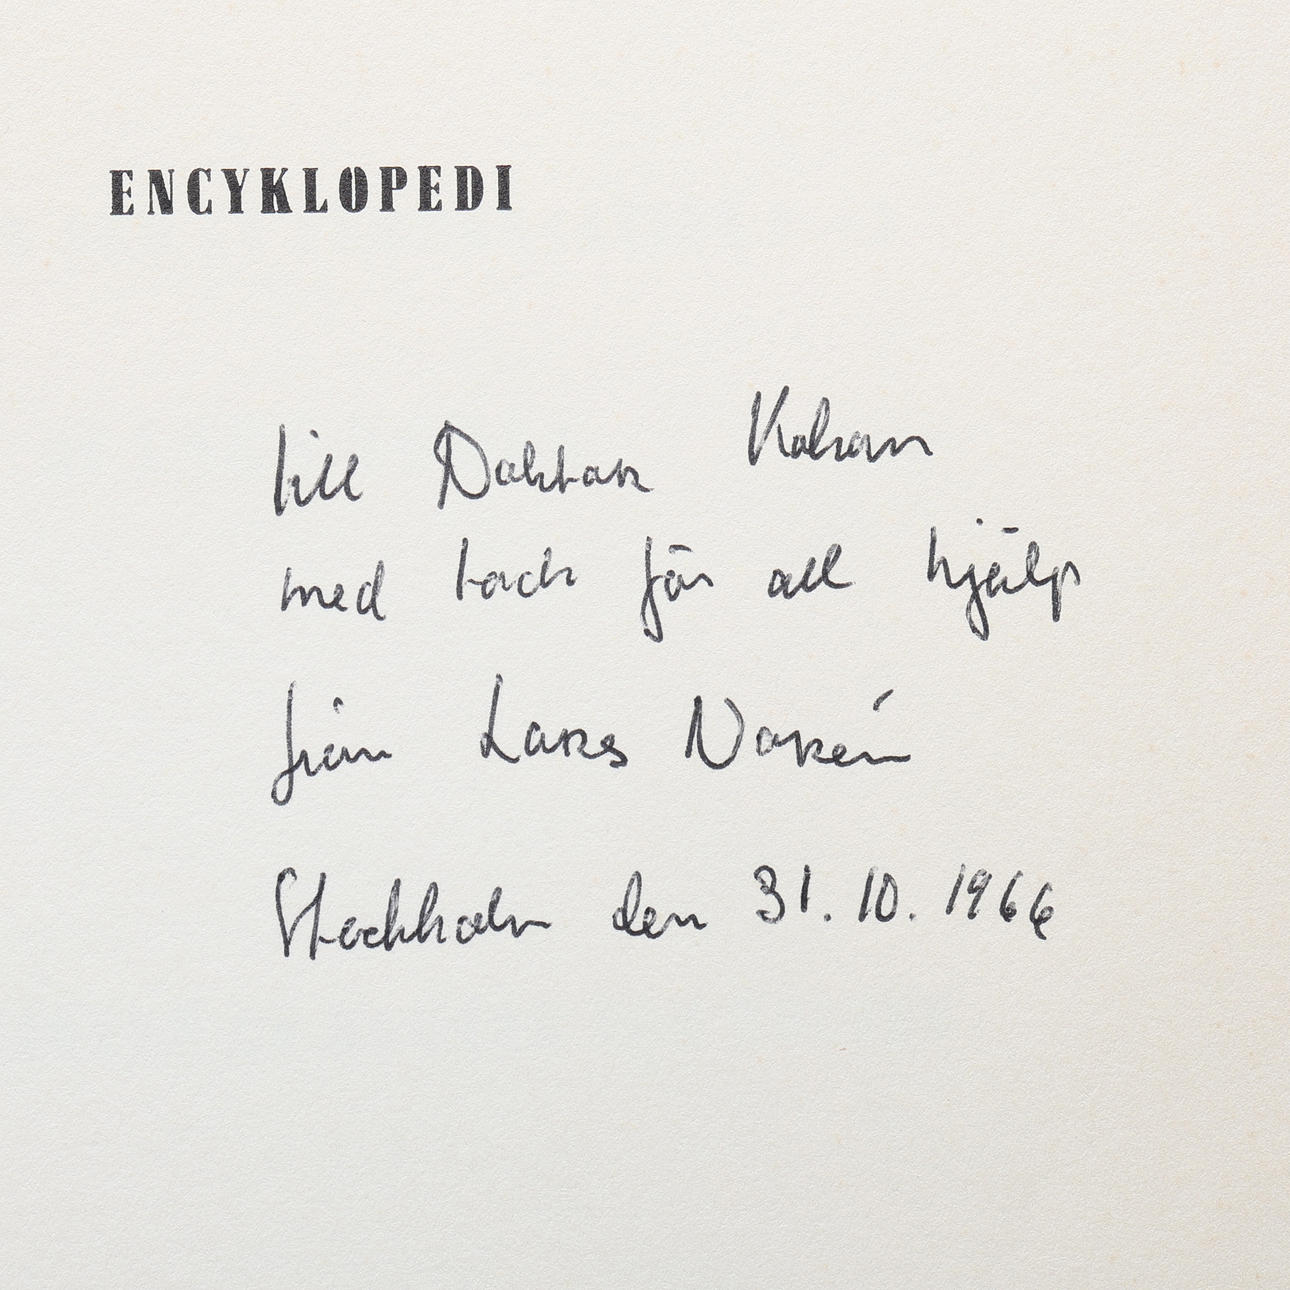 ENCYKLOPEDI
till Doktor Kahan
med tack för all hjälp
från Lars Norén
Stockholm den 31. 10. 1966